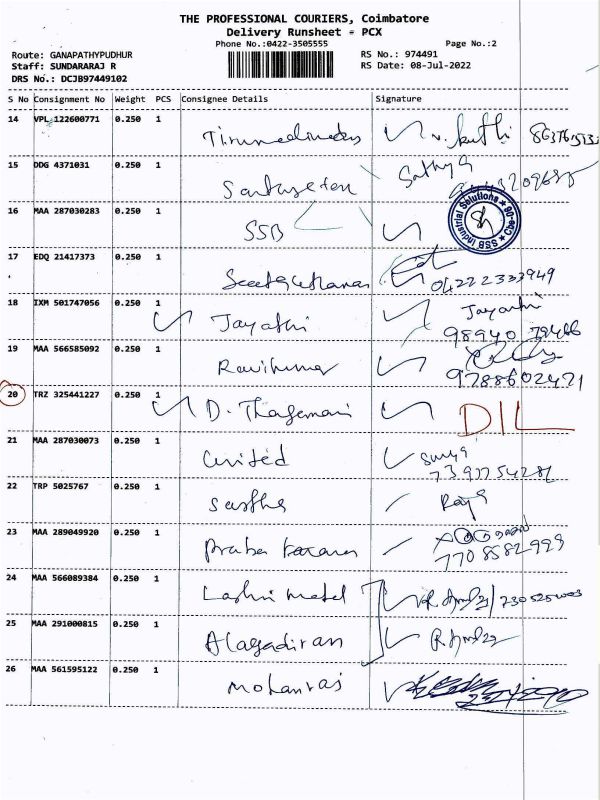 THE PROFESSIONAL COURIERS, Coimbatore
Delivery Runsheet - PCX
Phone No.:0422-3505555
Page No.:2
Route: GANAPATHYPUDHUR
RS No.: 974491
Staff: SUNDARARAJ R
RS Date: 08-Jul-2022
DRS No.: DCJB97449102
S No Consignment No Weight PCS Consignee Details Signature
14 VPL 122600771 0.250 1
15 DDG 4371031 0.250 1 Sathya
16 MAA 287030283 0.250 1 SSB
Industrial Solutions SSB
17 EDQ 21417373 0.250 1 04222333949
18 IXM 501747056 0.250 1 Jayathi Jayanthi
19 MAA 566585092 0.250 1 Ravikumar
9788602471
20 TRZ 325441227 0.250 1 D. Thagamani DIL
21 MAA 287030073 0.250 1 United Surya
22 TRP 5025767 0.250 1 Sastha Raja
23 MAA 289049920 0.250 1 Praba Karan
7708582929
24 MAA 566089384 0.250 1 Laxmi metal
25 MAA 291000815 0.250 1 Alagadiran
26 MAA 561595122 0.250 1 Mohanraj